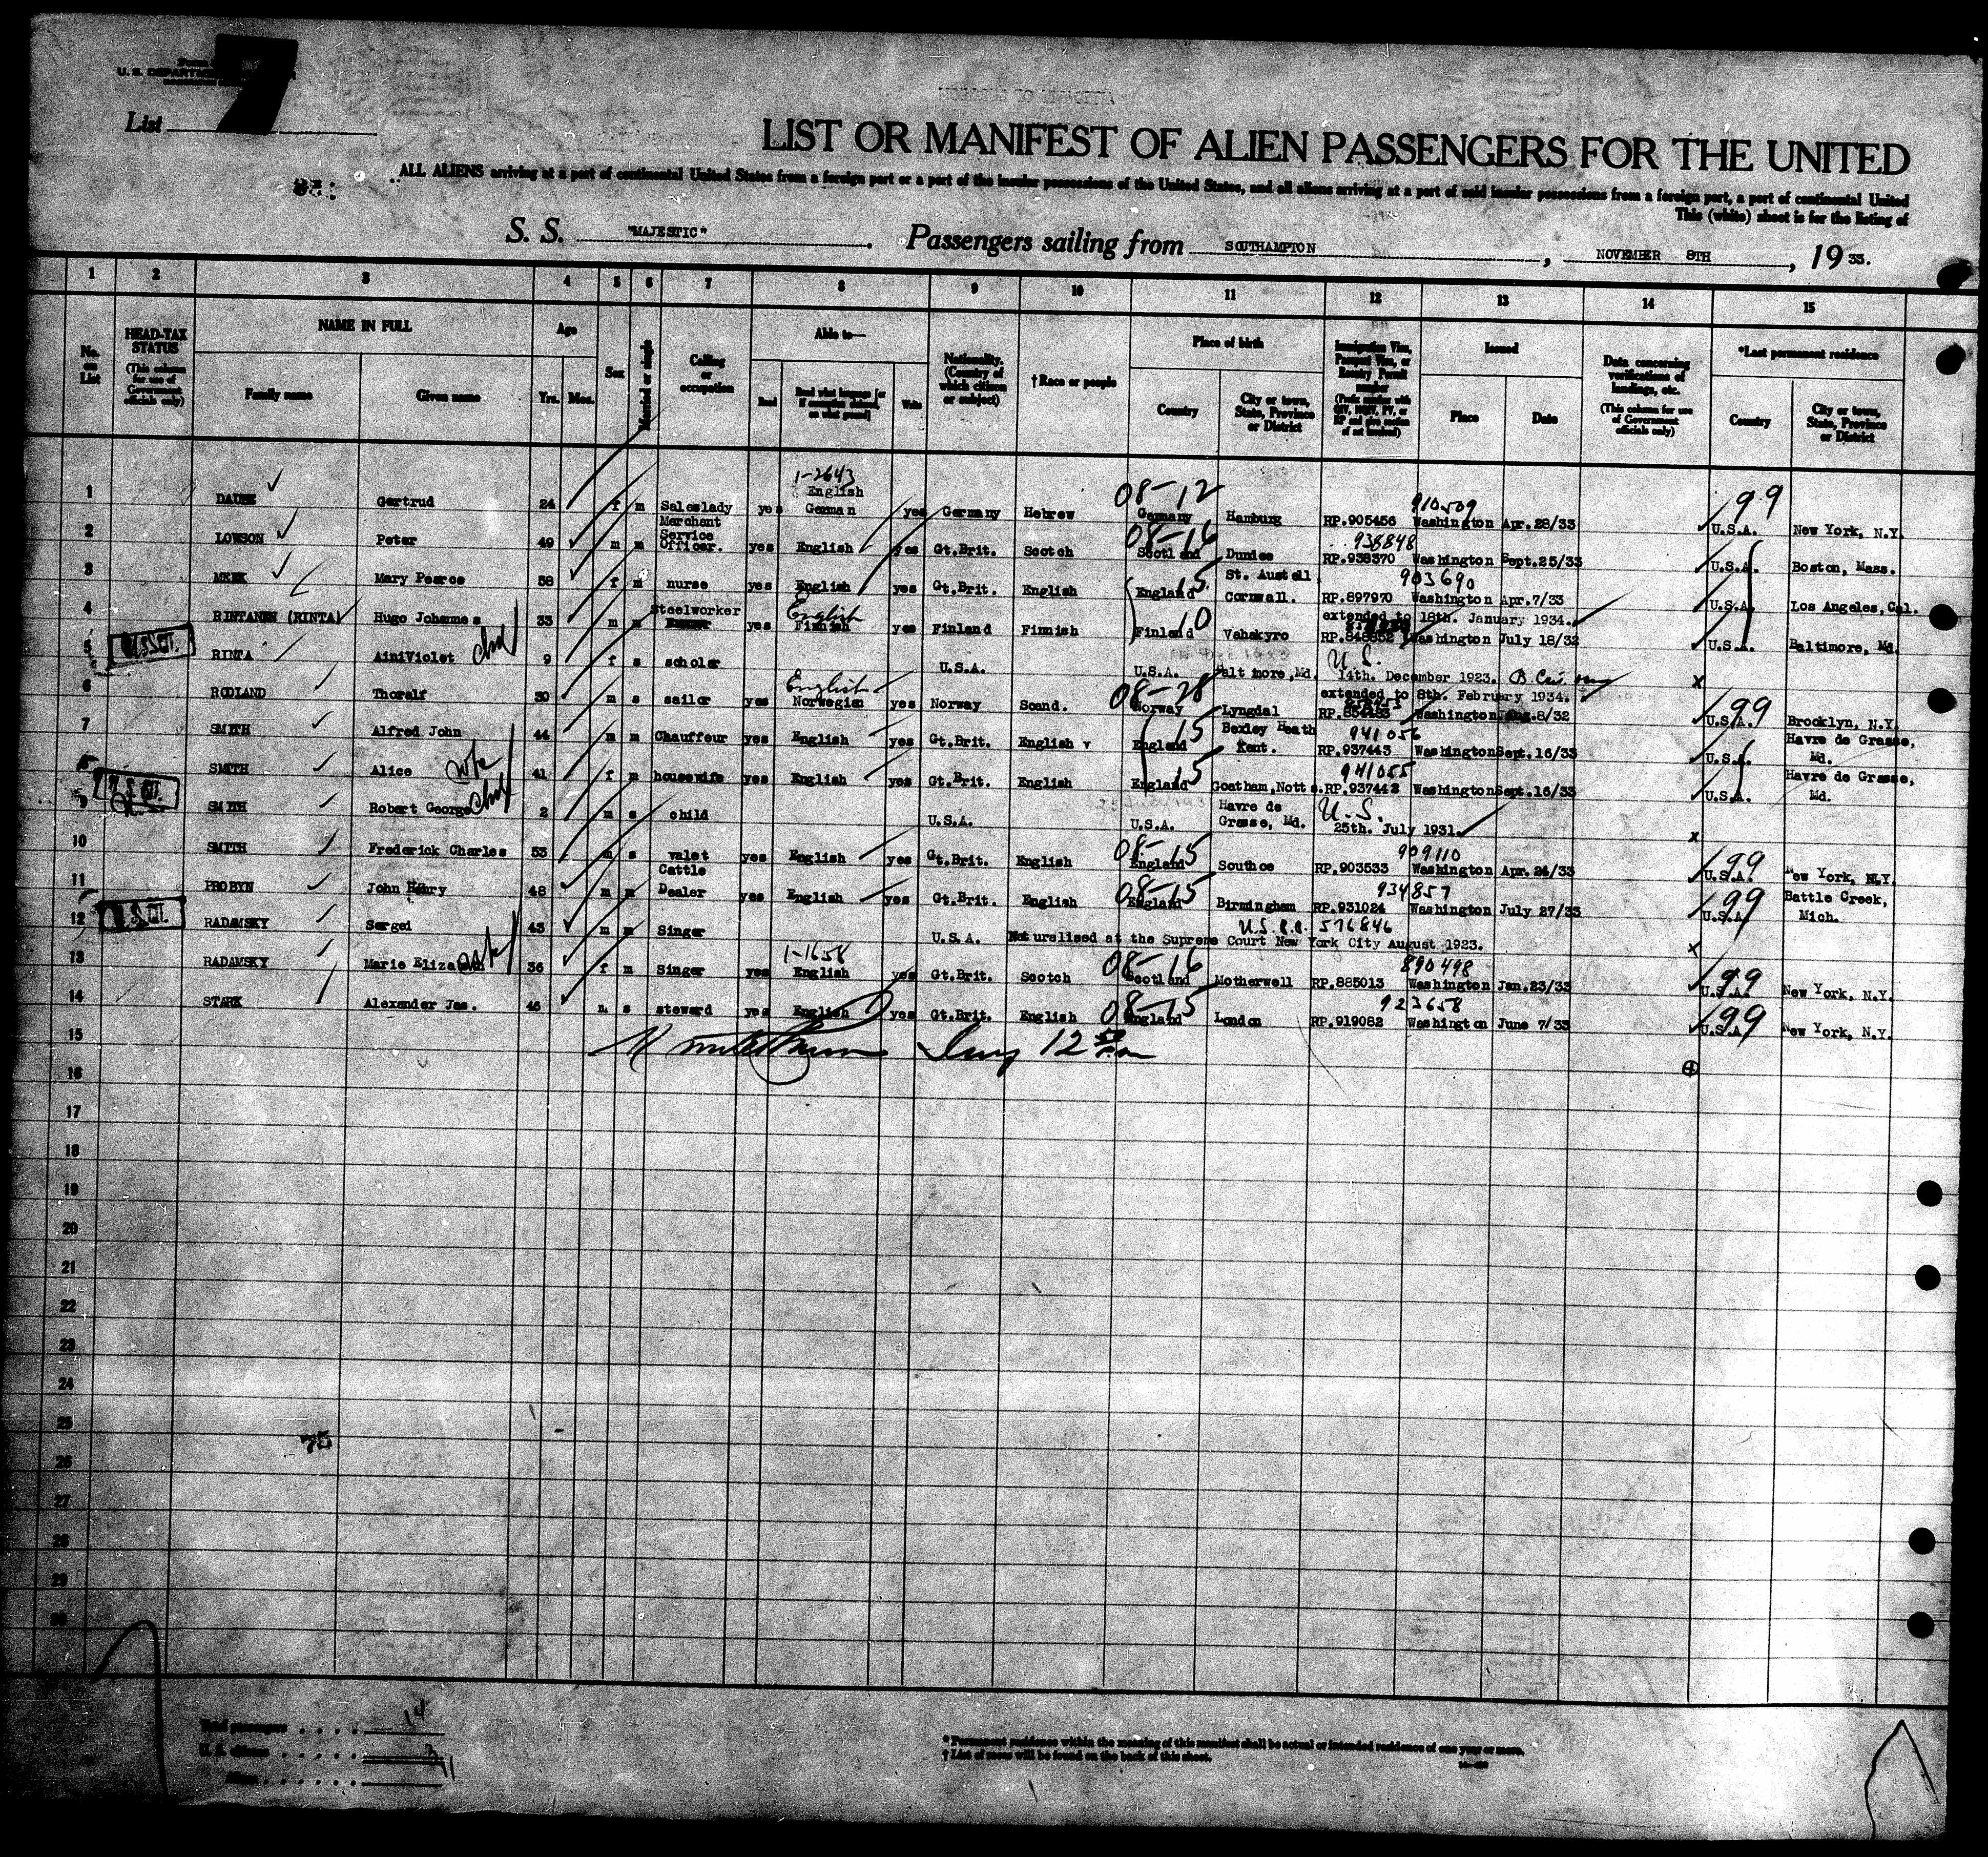 7
List
LIST OR MANIFEST OF ALIEN PASSENGERS FOR THE UNITED
ALL ALIENS arriving at a port of continental United States from a foreign port or a port of the insular possessions of the United States, and all aliens arriving at a port of said insular possessions from a foreign port, a port of continental United
This (white) sheet is for the listing of
S. S. "MAJESTIC" . Passengers sailing from SOUTHAMPTON , NOVEMBER 8TH , 19 33.
1 2 3 4 5 6 7 8 9 10 11 12 13 14 15
No. on List
HEAD-TAX STATUS (This column for use of Government officials only)
NAME IN FULL
Family name
Given name
Age
Yrs. Mos.
Sex
Married or single
Calling or occupation
Able to—
Read
Read what language [or if exemption claimed, on what ground]
Write
Nationality. (Country of which citizen or subject)
† Race or people
Place of birth
Country
City or town, State, Province or District
Immigration Visa, Passport Visa, or Reentry Permit number
Issued
Place
Date
Data concerning verifications of landings, etc. (This column for use of Government officials only)
*Last permanent residence
Country
City or town, State, Province or District
1-2643 08-12 910509 99
1 Gertrud 24 f m Saleslady yes English German yes Germany Hebrew Germany Hamburg RP.905456 Washington Apr.28/33 U.S.A. New York, N.Y.
08-16 938848
2 LOWSON Peter 49 m m Merchant Service Officer. yes English yes Gt.Brit. Scotch Scotland Dundee RP.938370 Washington Sept.25/33 U.S.A. Boston, Mass.
15 903690
3 Mary Pearce 58 f m nurse yes English yes Gt.Brit. English England St. Austell Cornwall. RP.897970 Washington Apr.7/33 U.S.A. Los Angeles, Cal.
English 10 extended to 18th. January 1934.
4 RINTANEN (RINTA) Hugo Johannes 33 m m Steelworker yes Finnish yes Finland Finnish Finland Vahakyro RP.848852 Washington July 18/32 U.S.A. Baltimore, Md.
U.S.
5 U.S.CIT. RINTA AiniViolet 9 f s scholar U.S.A. U.S.A. Baltimore, Md. 14th. December 1923. x
English 08-28 extended to 8th. February 1934. 99
6 RODLAND Thoralf 30 m s sailor yes Norwegian yes Norway Scand. Norway Lyngdal Washington Aug.8/32 U.S.A. Brooklyn, N.Y.
15 941056
7 SMITH Alfred John 44 m m Chauffeur yes English yes Gt.Brit. English v England Bexley Heath Kent. RP.937443 Washington Sept.16/33 U.S.A. Havre de Grasse, Md.
15 941055
8 SMITH Alice wfe 41 f m housewife yes English yes Gt.Brit. English England Goatham, Notts. RP.937442 Washington Sept.16/33 U.S.A. Havre de Grasse, Md.
U.S.
9 U.S.CIT. SMITH Robert George 2 m s child U.S.A. U.S.A. Havre de Grasse, Md. 25th. July 1931. x
08-15 909110 99
10 SMITH Frederick Charles 53 m s valet yes English yes Gt.Brit. English England Southoe RP.903533 Washington Apr.24/33 U.S.A. New York, N.Y.
08-15 934857 99
11 PROBYN John Henry 48 m m Cattle Dealer yes English yes Gt.Brit. English England Birmingham RP.931024 Washington July 27/33 U.S.A. Battle Creek, Mich.
576846
12 U.S.CIT. RADAMSKY Sergei 43 m m Singer U.S.A. Naturalised at the Supreme Court New York City August 1923. x
1-1658 08-16 890498 99
13 RADAMSKY Marie Elizabeth 36 f m Singer yes English yes Gt.Brit. Scotch Scotland Motherwell RP.885013 Washington Jan.23/33 U.S.A. New York, N.Y.
08-15 923658 99
14 STARK Alexander Jas. 46 m s steward yes English yes Gt.Brit. English England London RP.919082 Washington June 7/33 U.S.A. New York, N.Y.
15
16
17
18
19
20
21
22
23
24
25
75
26
27
28
29
30
Total passengers . . . . 14
U. S. citizens . . . . . 3
Aliens . . . . . . 11
* Permanent residence within the meaning of this manifest shall be actual or intended residence of one year or more.
† List of races will be found on the back of this sheet.